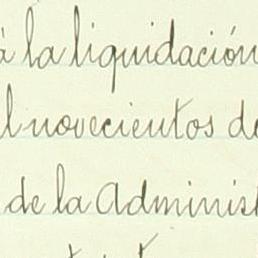 á la liquidación
l novecientos de
de la Adminis